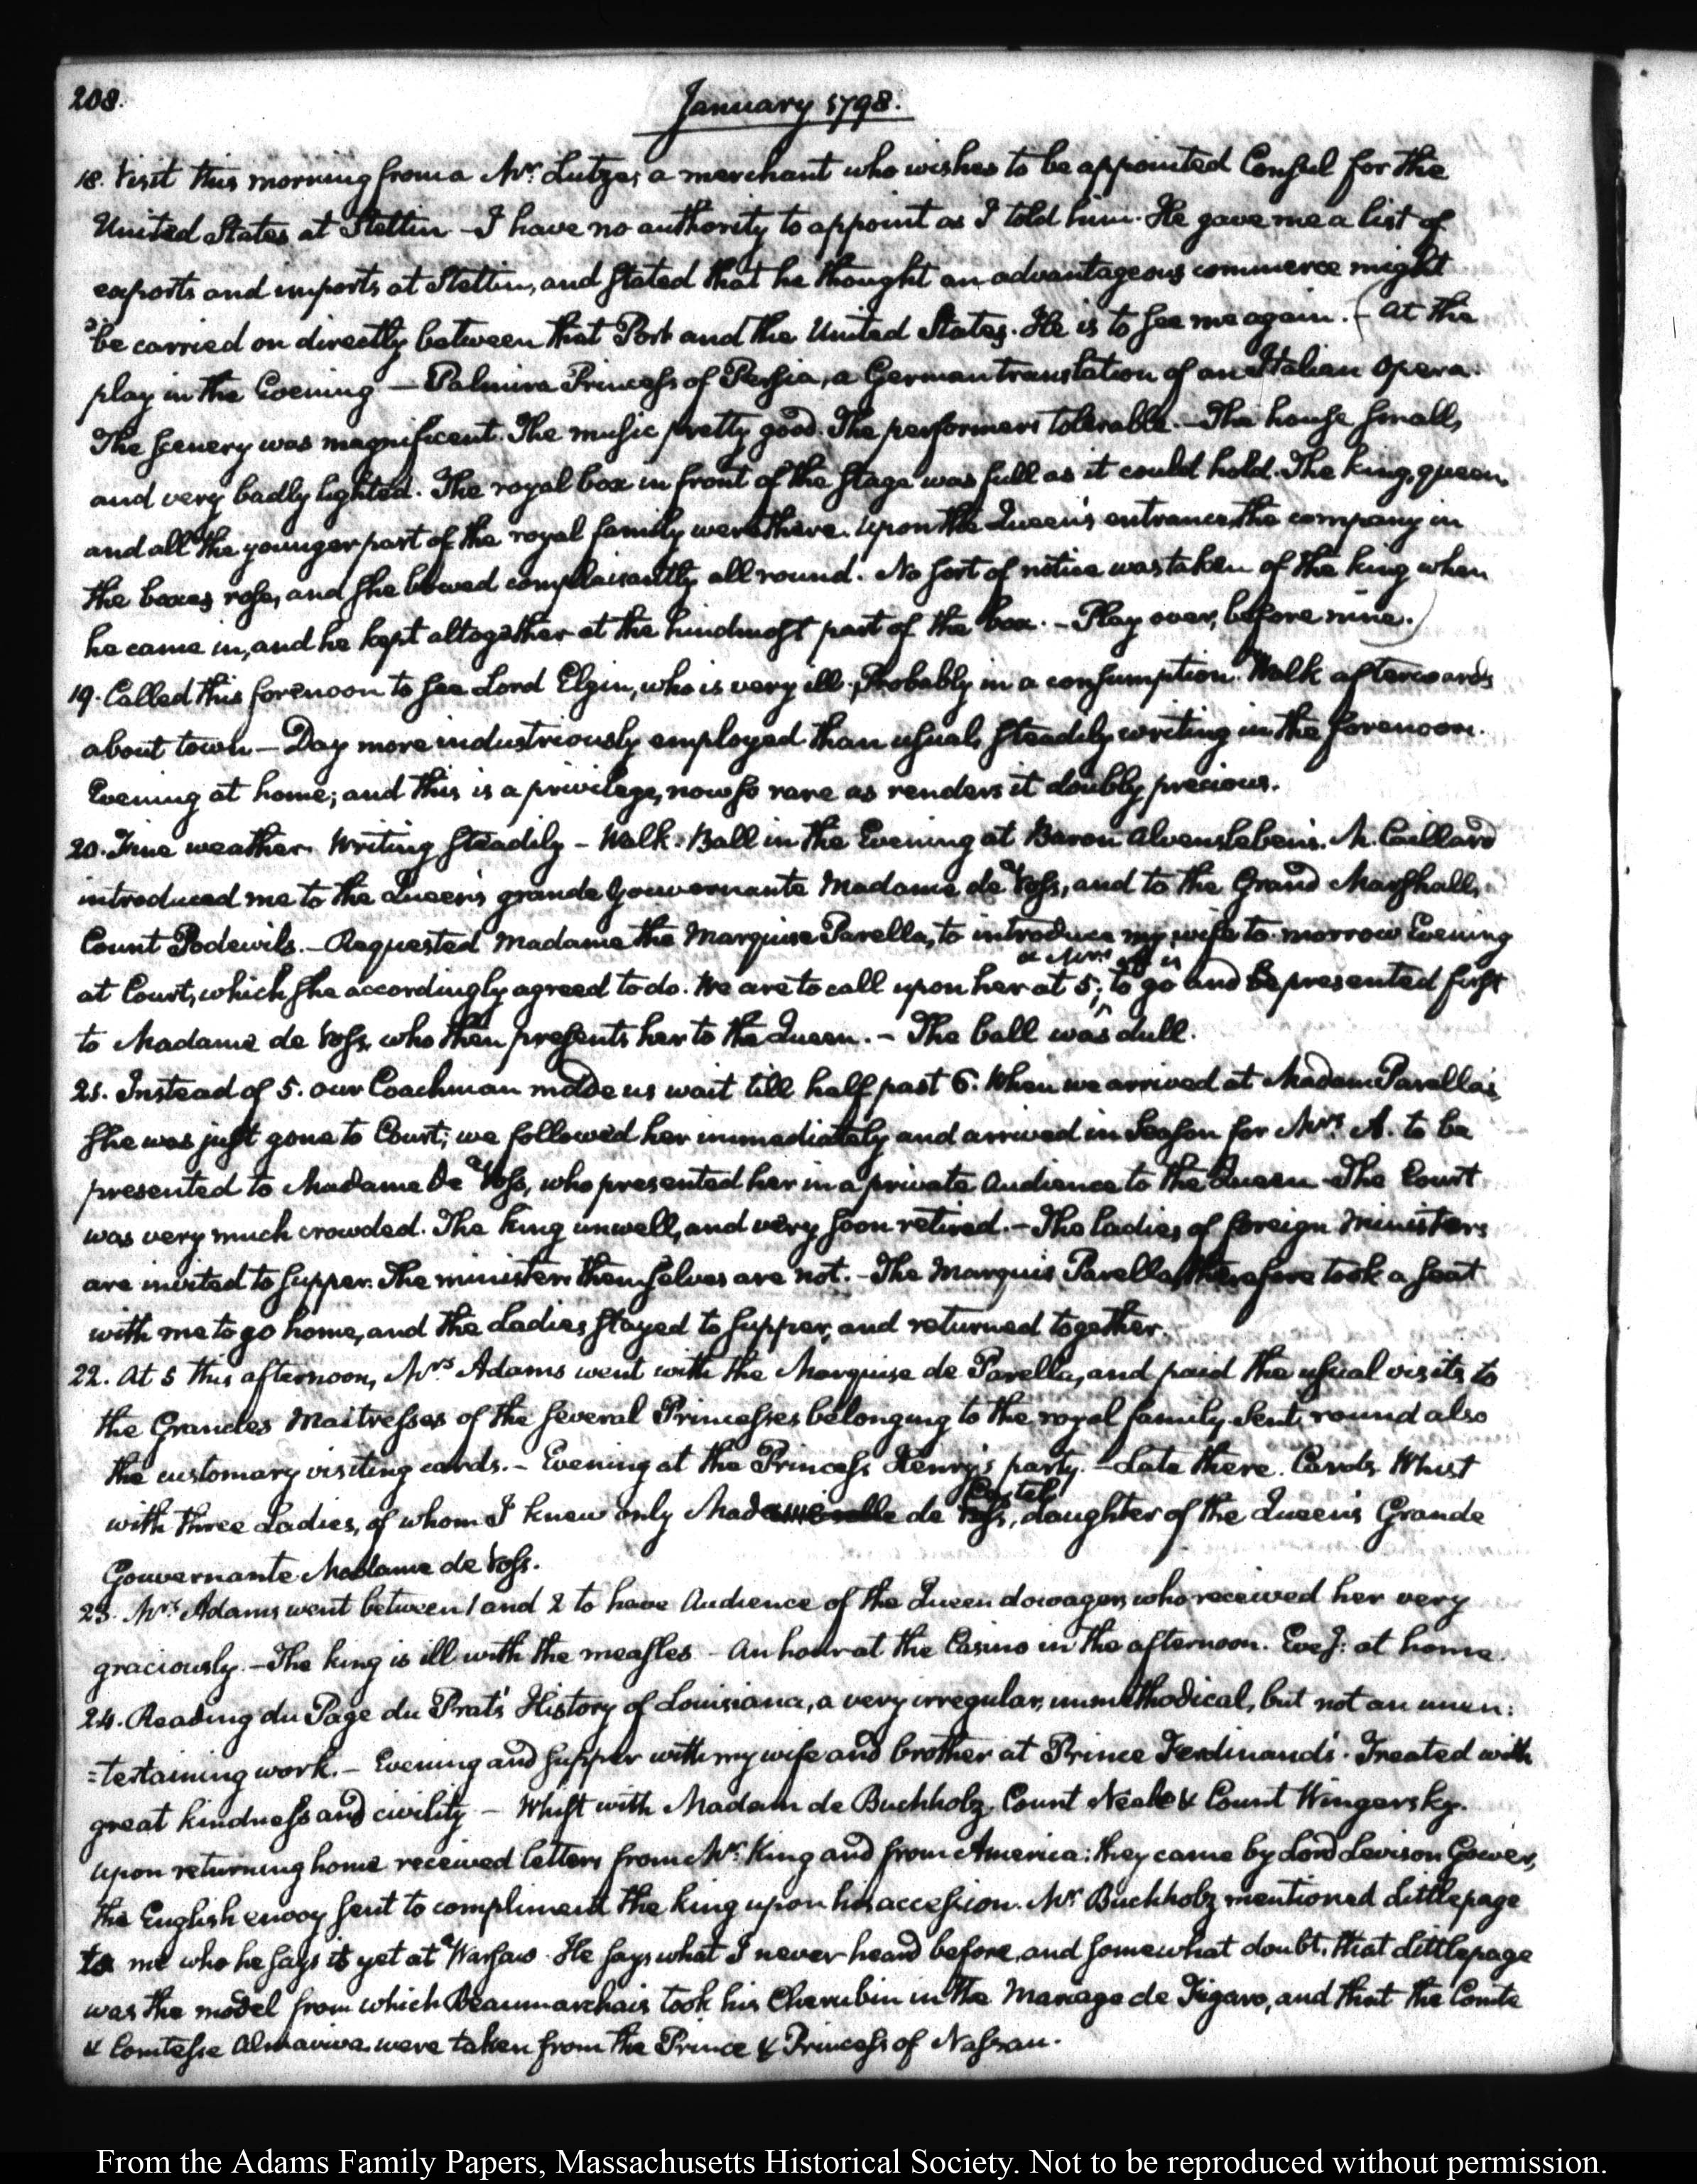 208.
January 1798.
18. Visit this morning from a Mr: Lutze, a merchant who wishes to be appointed Consul for the
United States at Stettin – I have no authority to appoint as I told him. He gave me a list of
exports and imports at Stettin, and stated that he thought an advantageous commerce might
be carried on directly between that Port and the United States. He is to see me again. – (At the
play in the Evening – Palmira Princess of Persia, a German translation of an Italian Opera.
The scenery was magnificent. The music pretty good. The performers tolerable. – The house small,
and very badly lighted. The royal box in front of the stage was full as it could hold. The king, queen,
and all the younger part of the royal family were there. Upon the Queen's entrance, the company in
the boxes rose, and she bowed complaisantly all round. No sort of notice was taken of the king when
he came in, and he kept altogether at the hindmost part of the box. – Play over, before nine.)
19. Called this forenoon to see Lord Elgin, who is very ill. Probably in a consumption. Walk afterwards
about town – Day more industriously employed than usual, steadily writing in the forenoon.
Evening at home; and this is a privilege, now so rare as renders it doubly precious.
20. Fine weather. Writing steadily – Walk. Ball in the Evening at Baron Alvensleben's. M. Caillard
introduced me to the Queen's grande Gouvernante Madame de Voss, and to the Grand Marshall,
Count Podewils. – Requested Madame the Marquise Parella, to introduce my wife to-morrow Evening
at Court, which she accordingly agreed to do. We are to call upon her at 5; & Mrs. A. is to go and be presented first
to Madame de Voss, who then presents her to the Queen. – The ball was dull.
21. Instead of 5. our Coachman made us wait till half past 6. When we arrived at Madam Parella's,
she was just gone to Court; we followed her immediately and arrived in season for Mrs. A. to be
presented to Madame de Voss, who presented her in a private Audience to the Queen – The Court
was very much crowded. The king unwell, and very soon retired. – The ladies of foreign Ministers
are invited to supper. The ministers themselves are not. – The Marquis Parella therefore took a seat
with me to go home, and the Ladies stayed to supper, and returned together.
22. At 5 this afternoon, Mrs Adams went with the Marquise de Parella, and paid the usual visits to
the Grandes Maitresses of the several Princesses belonging to the royal family. Sent round also
the customary visiting cards. – Evening at the Princess Henry's party. – Late there. Cards. Whist
with three Ladies, of whom I knew only de Castel, daughter of the Queen's Grande
Gouvernante Madame de Voss.
23. Mrs. Adams went between 1 and 2 to have Audience of the Queen dowager, who received her very
graciously. – The king is ill with the measles – An hour at the Casino in the afternoon. Eveg: at home.
24. Reading du Page du Prat's History of Louisiana, a very irregular, unmethodical, but not an unen:
=tertaining work. – Evening and supper with my wife and brother at Prince Ferdinand's. Treated with
great kindness and civility – Whist with Madam de Buchholz, Count Neale & Count Wingersky.
Upon returning home received letters from Mr. King and from America: they came by Lord Levison Gower,
the English envoy sent to compliment the king upon his accession. Mr Buchholz mentioned Littlepage
to me who he says is yet at Warsaw. He says what I never heard before, and somewhat doubt, that Littlepage
was the model from which Beaumarchais took his Cherubin in the Mariage de Figaro, and that the Comte
& Comtesse Almaviva were taken from the Prince & Princess of Nassau.
From the Adams Family Papers, Massachusetts Historical Society. Not to be reproduced without permission.